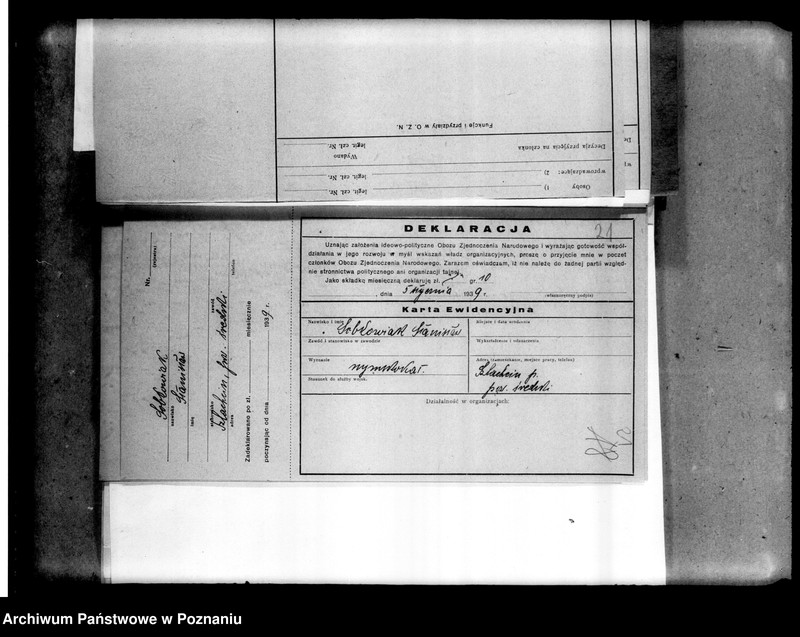 Funkcje i przydziały w O. Z. N.
Decyzja przyjęcia na członka
Wydano
legit. czł. Nr.
wprowadzające: 2)
legit. czł. Nr.
Osoby 1)
legit. czł. Nr.
DEKLARACJA
21
Uznając założenia ideowo-polityczne Obozu Zjednoczenia Narodowego i wyrażając gotowość współ-
działania w jego rozwoju w myśl wskazań władz organizacyjnych, proszę o przyjęcie mnie w poczet
członków Obozu Zjednoczenia Narodowego. Zarazem oświadczam, iż nie należę do żadnej partii względ-
nie stronnictwa politycznego ani organizacji tajnej.
Jako składkę miesięczną deklaruję zł. gr. 10
, dnia 5 stycznia 1939 r.
(własnoręczny podpis)
Karta Ewidencyjna
Nazwisko i imię
Sobkowiak Stanisław
Miejsce i data urodzenia
Zawód i stanowisko w zawodzie
Wykształcenie i odznaczenia
Wyznanie
Adres (zamieszkanie, miejsce pracy, telefon)
Szlachcin p.
pow. średzki
Stosunek do służby wojsk.
Działalność w organizacjach:
Nr.
Sobkowiak
nazwisko
Stanisław
imię
zawód
Szlachcin pow. średzki
adres
telefon
Zadeklarowano po zł. miesięcznie
począwszy od dnia 1939 r.
Archiwum Państwowe w Poznaniu